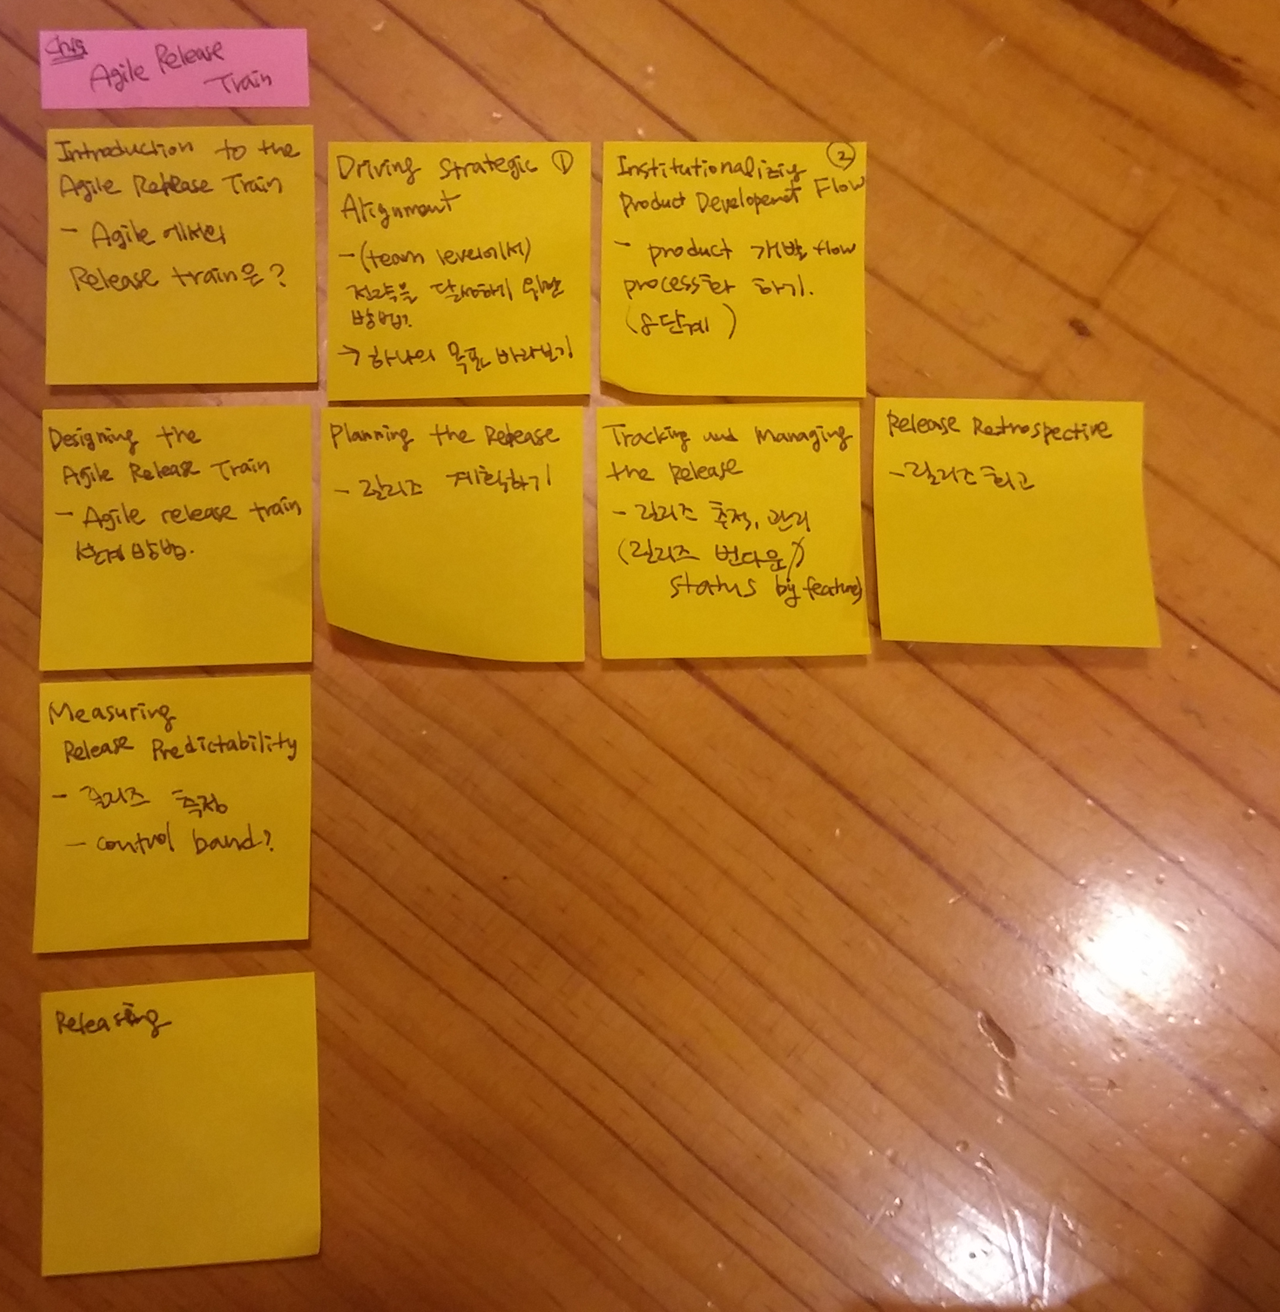 Ch15
Agile Release
Train
Introduction to the
Agile Release Train
- Agile 에서의
Release train은?
Driving Strategic ①
Alignment
- (team level에서)
전략을 달성하기 위한
방법?
→ 하나의 목표 바라보기
②
Institutionaliziy
Product Developemet Flow
- product 개발 flow
process화 하기.
(8단계)
Designing the
Agile Release Train
- Agile release train
설계 방법.
Planning the Release
- 릴리즈 계획하기
Tracking and Managing
the release
- 릴리즈 추적, 관리
(릴리즈 번다운,
status by feature)
Release Retrospective
- 릴리즈 회고
Measuring
Release Predictability
- 릴리즈 측정
- control band?
Releasing